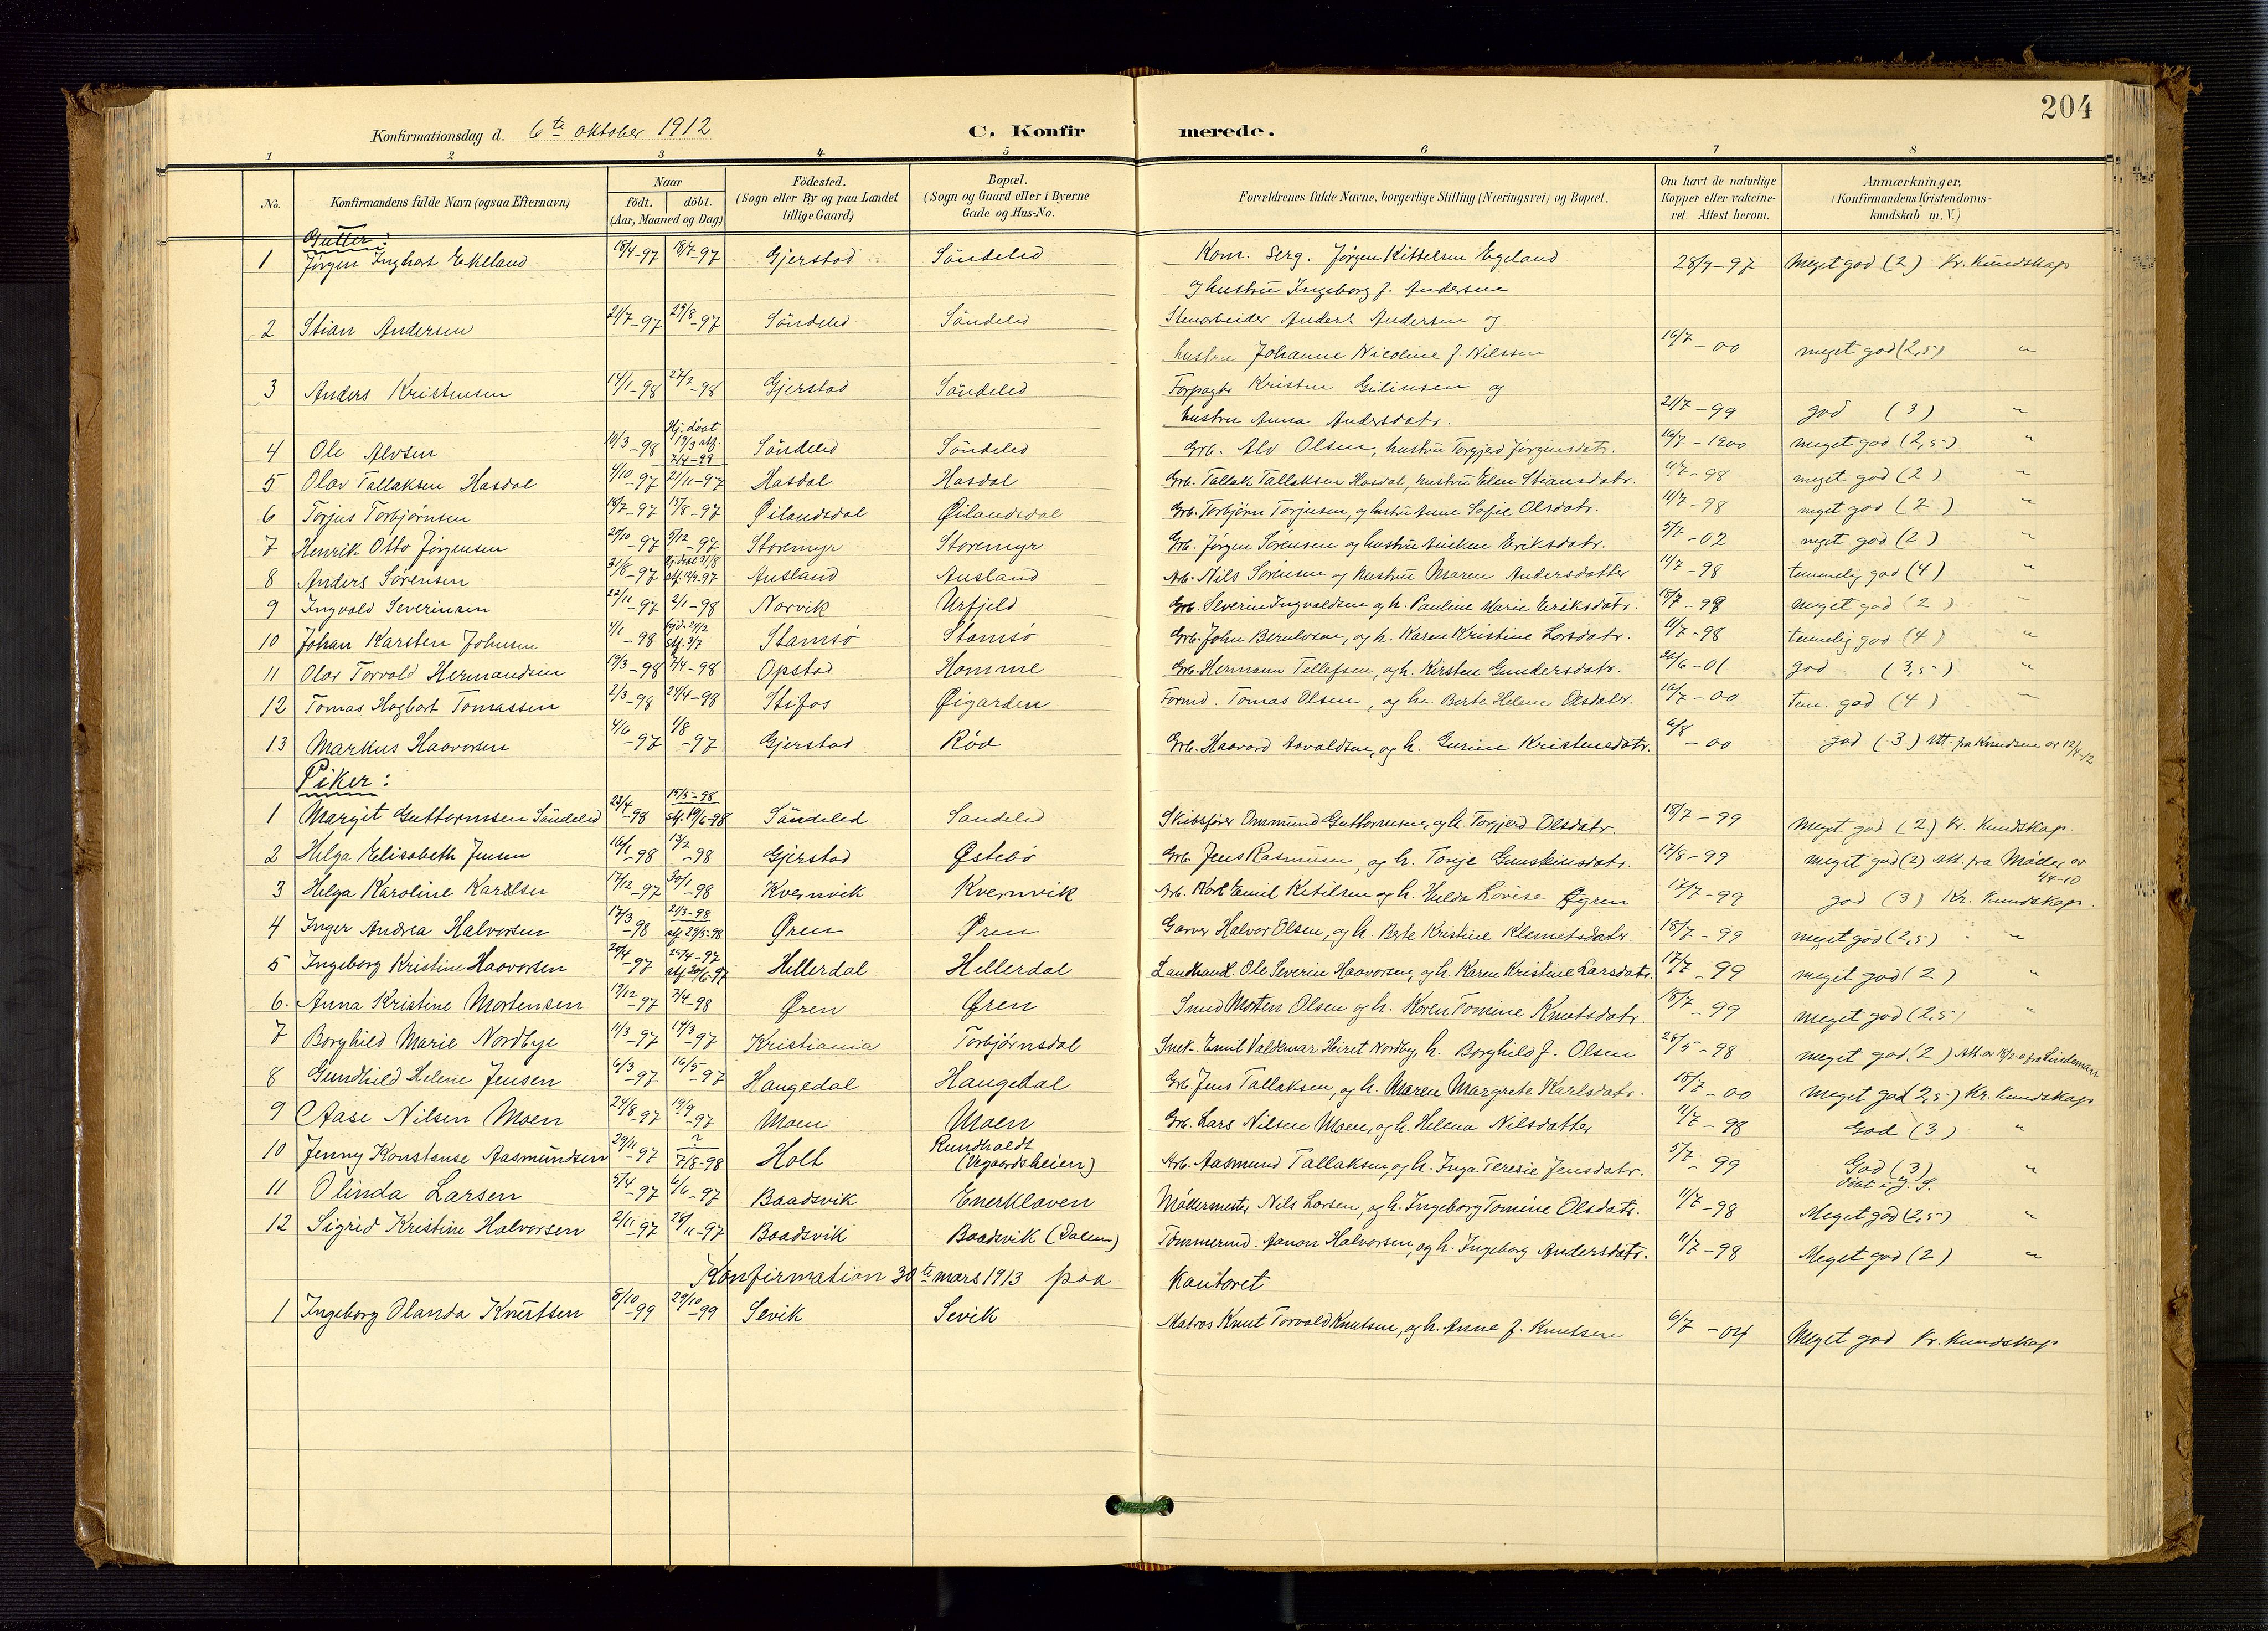 204
Konfirmationsdag d. 6te oktober 1912 C. Konfirmerede.
1 2 3 4 5 6 7 8
No. Konfirmandens fulde Navn (ogsaa Efternavn) Naar født. døbt. (Aar, Maaned og Dag) Födested. (Sogn eller By og paa Landet tillige Gaard) Bopæl. (Sogn og Gaard eller i Byerne Gade og Hus-No. Forældrenes fulde Navne, borgerlige Stilling (Næringsvei) og Bopæl. Om havt de naturlige Kopper eller vakcineret. Attest herom. Anmærkninger, (Konfirmandens Kristendomskundskab m. V.)
Gutter:
1 Jørgen Inghart Ekeland 18/4-97 18/7-97 Gjerstad Söndeled Kom. Serg. Jørgen Kittelsen Egeland 28/9-97 Meget god (2) Kr. Kundskap
og hustru Ingeborg f. Andersen
2 Stian Andersen 21/7-97 29/8-97 Söndeled Söndeled Stenarbeider Anders Andersen og
hustru Johanne Nicoline f. Nilssen 16/7-00 meget god (2,5) "
3 Anders Kristensen 14/1-98 27/2-98 Gjerstad Söndeled Forpagter Kristen og
hustru Anna Andersdatr. 21/7-99 god (3) "
4 Ole Alvsen 10/3-98 Hj. døpt 19/3 stf. 7/4-98 Söndeled Söndeled Grb. Alv Olsen, hustru Torgjerd Jørgensdatr. 16/7-1900 meget god (2,5) "
5 Olav Tallaksen Hasdal 4/10-97 21/11-97 Hasdal Hasdal Grb. Tallak Tallaksen Hasdal, hustru Elen Stiansdatr. 11/7-98 meget god (2) "
6 Torjus Torbjørnsen 18/7-97 15/8-97 Øilandsdal Øilandsdal Grb. Torbjørn Torjusen, og hustru Anne Sofie Olsdatr. 11/7-98 meget god (2) "
7 Henrik Otto Jørgensen 20/10-97 5/12-97 Storemyr Storemyr Grb. Jørgen Sørensen og hustru Eriksdatr. 5/7-02 meget god (2) "
8 Anders Sørensen 31/8-97 Hj. døpt 31/8 stf. 12/9-97 Ausland Ausland Arb. Nils Sørensen og hustru Maren Andersdatter 11/7-98 temmelig god (4) "
9 Ingvald Severinsen 22/11-97 2/1-98 Norvik Urfjeld Grb. Severin Ingvaldsen og h. Pauline Marie Eriksdatr. 18/7-98 meget god (2) "
10 Johan Karsten Johnsen 4/1-98 hjd. 24/2 stf. 3/7 Stamsø Stamsø Grb. John og h. Karen Kristine Larsdatr. 11/7-98 temmelig god (4) "
11 Olav Torvald Hermandsen 19/3-98 7/4-98 Opstad Homme Grb. Hermann Tellefsen, og h. Kirsten Gundersdatr. 26/6-01 god (3,5) "
12 Tomas Hagbart Tomassen 2/3-98 24/4-98 Stifos Øigarden Formd. Tomas Olsen, og h. Berte Helene Olsdatr. 16/7-00 tem. god (4) "
13 Markus Haavorsen 4/6-97 1/8-97 Gjerstad Rød Grb. Haavard Aavaldsen, og h. Gurine Kristensdatr. 6/8-00 god (3) Att. fra Knudsen av 12/4-12
Piker:
1 Margit Guttormsen Söndeled 23/4-98 15/5-98 stf. 19/6-98 Söndeled Söndeled Skibsfører Ommund Guttormsen, og h. Torgjerd Olsdatr. 18/7-99 Meget god (2) Kr. Kundskap.
2 Helga Elisabeth Jensen 16/1-98 13/2-98 Gjerstad Østebø Grb. Jens Rasmusen, og h. Tonje Gunskinsdatr. 17/8-99 meget god (2) Att. fra Møller av 1/4-10
3 Helga Karoline Karlsen 17/12-97 30/1-98 Kvernvik Kvernvik Arb. Karl Emil Ketilsen og h. Hulda Lovise 17/7-99 god (3) Kr. Kundskap.
4 Inger Andrea Halvorsen 17/3-98 21/3-98 stf. 29/5-98 Øren Øren Garver Halvor Olsen, og h. Berte Kristine Klemetsdatr. 18/7-99 meget god (2,5) "
5 Ingeborg Kristine Haavorsen 20/4-97 25/4-97 stf. 20/6-97 Hellerdal Hellerdal Landhandl. Ole Severin Haavorsen, og h. Karen Kristine Larsdatr. 17/7-99 meget god (2) "
6. Anna Kristine Mortensen 19/12-97 7/4-98 Øren Øren Smed Morten Olsen og h. Karen Tomine Knutsdatr. 18/7-99 meget god (2,5) "
7 Borghild Marie Nordbye 11/3-97 14/3-97 Kristiania Torbjørnsdal Snek. Emil Valdemar Nordby, h. Borghild f. Olsen 28/5-98 meget god (2) Att. av fra Lindeman
8 Gundhild Helene Jensen 6/3-97 16/5-97 Haugedal Haugedal Grb. Jens Tallaksen, og h. Maren Margrete Karlsdatr. 18/7-00 Meget god 2,5) Kr. Kundskap
9 Aase Nilsen Moen 24/8-97 19/9-97 Moen Moen Grb. Lars Nilsen Moen, og h. Helena Nilsdatter 11/7-98 God (3) "
10 Jenny Konstanse Aasmundsen 29/11-97 ? 7/8-98 Holt Rundholdt (Vegaardsheien) Arb. Aasmund Tallaksen, og h. Inga Teresie Jensdatr. 5/7-99 God (3) "
døbt i J. S.
11 Olinda Larsen 5/4-97 6/6-97 Baadsvik Enerklaven Møllermester Nils Larsen, og h. Ingeborg Tomine Olsdatr. 11/7-98 Meget god (2,5) "
12 Sigrid Kristine Halvorsen 2/11-97 28/11-97 Baadsvik Baadsvik (Dalen) Tømmermd. Aanon Halvorsen, og h. Ingeborg Andersdatr. 11/7-98 Meget god (2) "
Konfirmation 30te mars 1913 paa Kontoret
1 Ingeborg Olanda Knutsen 8/10-99 29/10-99 Sevik Sevik Matros Knut Torvald Knutsen, og h. Anne f. Knutsen 6/7-04 Meget god Kr. Kundskap